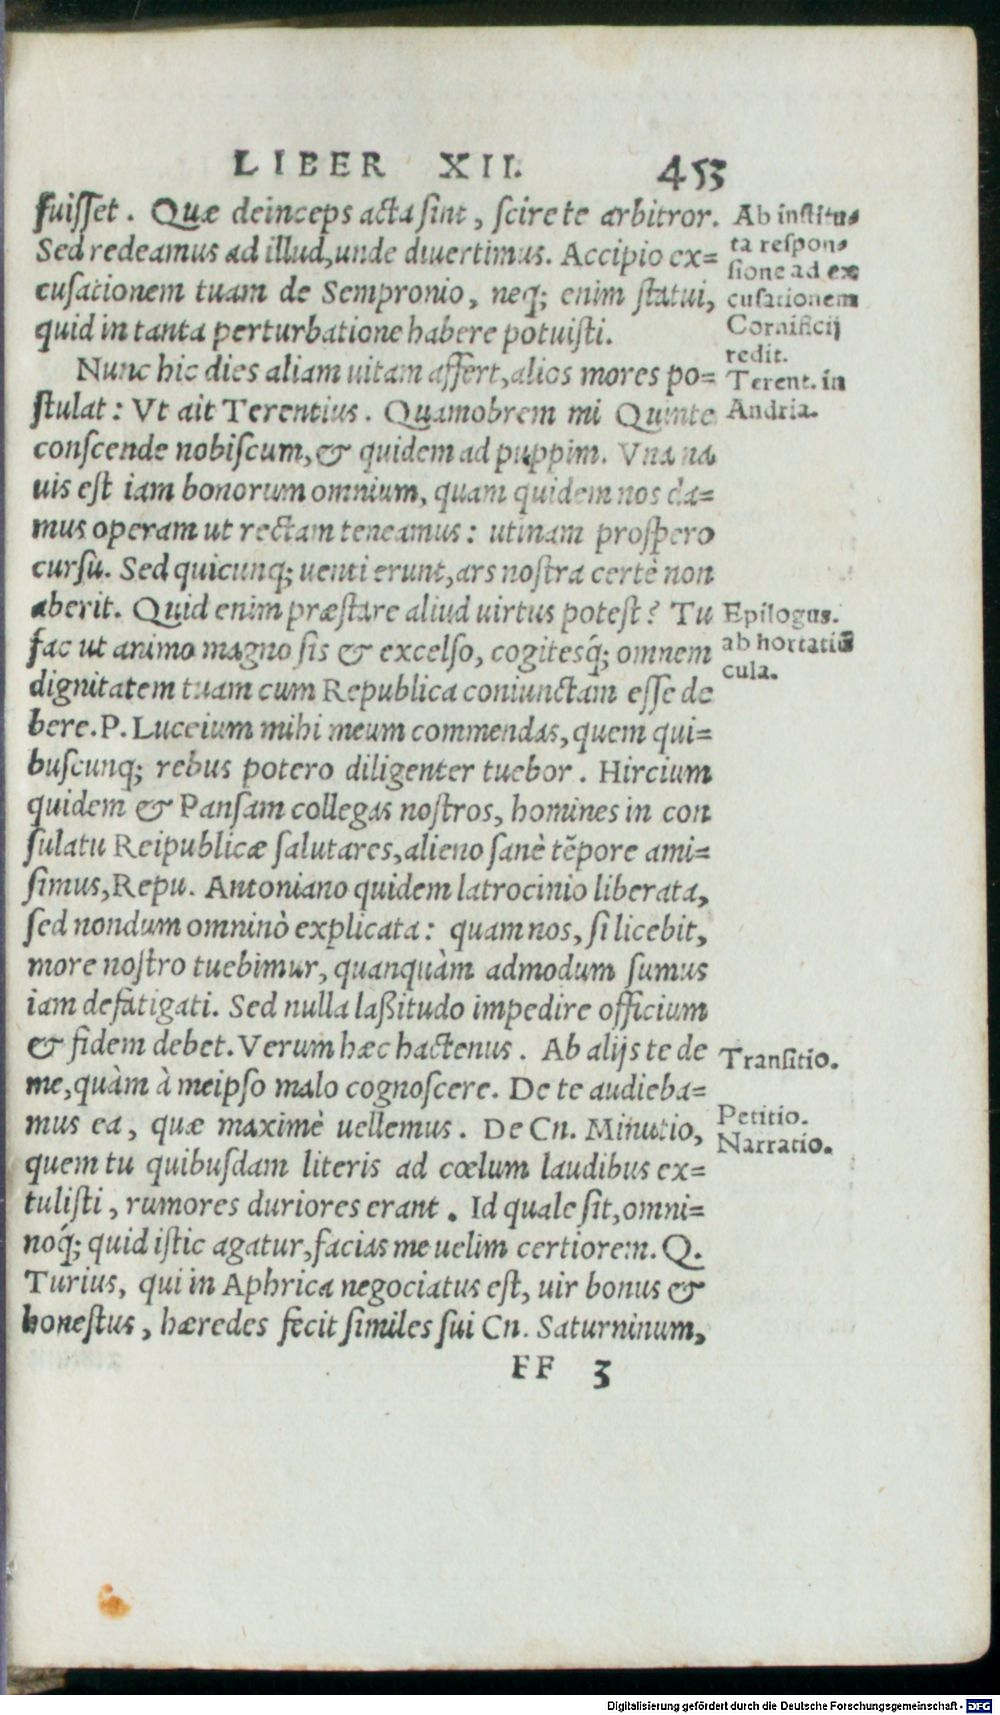 LIBER XII. 453
fuisset. Quæ deinceps acta sint, scire te arbitror.
Sed redeamus ad illud, unde divertimus. Accipio ex=
cusationem tuam de Sempronio, neq; enim statui,
quid in tanta perturbatione habere potuisti.
Nunc hic dies aliam uitam affert, alios mores po=
stulat: Vt ait Terentius. Quamobrem mi Quinte
conscende nobiscum, & quidem ad puppim. Vna na
uis est iam bonorum omnium, quam quidem nos da=
mus operam ut rectam teneamus: utinam prospero
cursu. Sed quicunq; uenti erunt, ars nostra certè non
aberit. Quid enim præstare aliud uirtus potest? Tu
fac ut animo magno sis & excelso, cogitesq́; omnem
dignitatem tuam cum Republica coniunctam esse de
bere. P. Luceium mihi meum commendas, quem qui=
buscunq; rebus potero diligenter tuebor. Hircium
quidem & Pansam collegas nostros, homines in con
sulatu Reipublicæ salutares, alieno sanè tẽpore ami=
simus, Repu. Antoniano quidem latrocinio liberata,
sed nondum omninò explicata: quam nos, si licebit,
more nostro tuebimur, quanquàm admodum sumus
iam defatigati. Sed nulla laßitudo impedire officium
& fidem debet. Verum hæc hactenus. Ab alijs te de
me, quàm à meipso malo cognoscere. De te audieba=
mus ea, quæ maximè uellemus. De Cn. Minutio,
quem tu quibusdam literis ad cœlum laudibus ex=
tulisti, rumores duriores erant. Id quale sit, omni=
noq́; quid istic agatur, facias me uelim certiorem. Q.
Turius, qui in Aphrica negociatus est, uir bonus &
honestus, hæredes fecit similes sui Cn. Saturninum,
FF 3
Ab institu=
ta respon=
sione ad ex
cusationem
Cornificij
redit.
Terent. in
Andria.
Epilogus.
ab hortatiũ
cula.
Transitio.
Petitio.
Narratio.
Digitalisierung gefördert durch die Deutsche Forschungsgemeinschaft - DFG